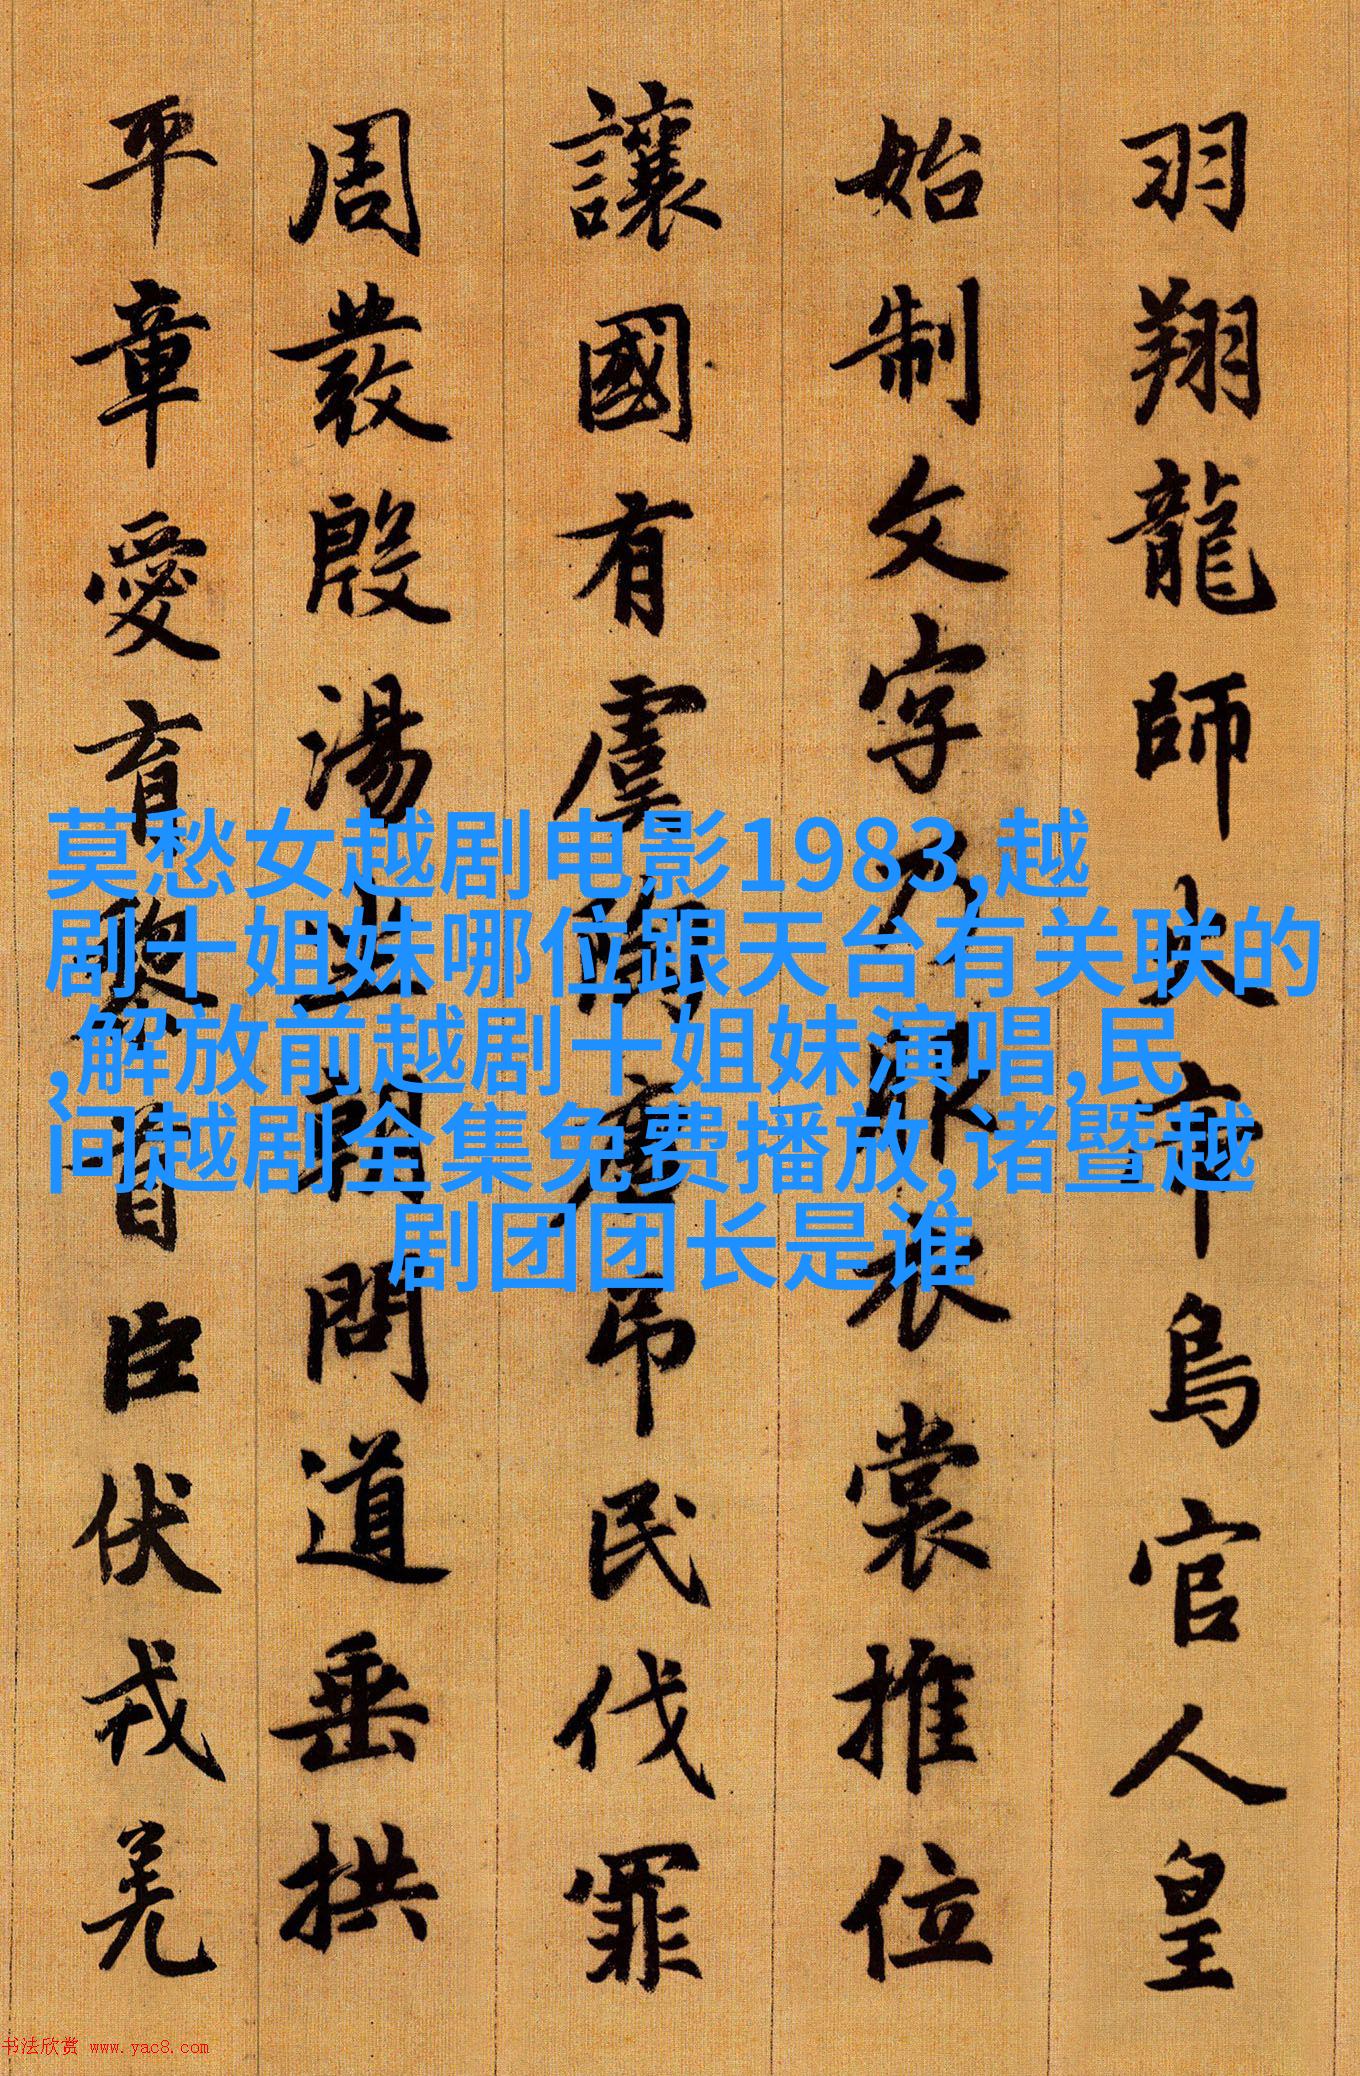 羽翔龍師火帝鳥官人皇
始制文字乃服衣裳推位
讓國有虞陶唐吊民伐罪
周發殷湯坐朝問道垂拱
平章愛育黎首臣伏戎羌
莫愁女越剧电影1983,越
剧十姐妹哪位跟天台有关联的
,解放前越剧十姐妹演唱,民
间越剧全集免费播放,诸暨越
剧团团长是谁
书法欣赏 www.yac8.com